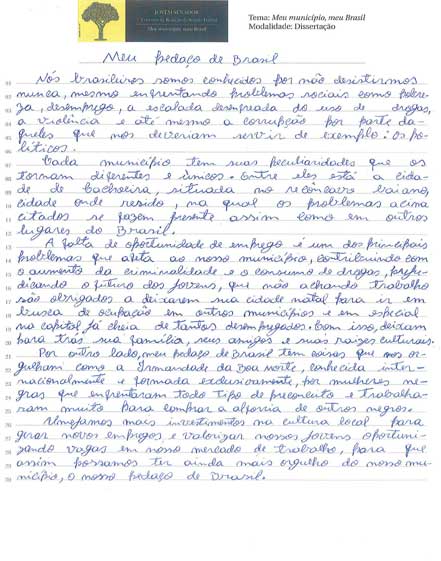 JOVEM SENADOR
Meu município, meu Brasil
Tema: Meu município, meu Brasil
Modalidade: Dissertação
Meu pedaço de Brasil
01 Nós brasileiros somos conhecidos por não desistirmos
02 nunca, mesmo enfrentando problemas sociais como pobre-
03 za, desemprego, a escalada desenfreada do uso de drogas,
04 a violência e até mesmo a corrupção por parte da-
05 queles que nos deveriam servir de exemplo: Os po-
06 líticos.
07 Cada município tem suas peculiaridades que os
08 tornam diferentes e únicos. Entre eles está a cida-
09 de de Cachoeira, situada no recôncavo baiano,
10 cidade onde resido, na qual os problemas acima
11 citados se fazem presente assim como em outros
12 lugares do Brasil.
13 A falta de oportunidade de emprego é um dos principais
14 problemas que afeta ao nosso município, contribuindo com
15 o aumento da criminalidade e o consumo de drogas, preju-
16 dicando o futuro dos jovens, que não achando trabalho
17 são obrigados a deixarem sua cidade natal para ir em
18 busca de ocupação em outros municípios e em especial
19 na capital, já cheia de tantos desempregados. Com isso, deixam
20 para trás sua família, seus amigos e suas raízes culturais.
21 Por outro lado, meu pedaço de Brasil tem coisas que nos or-
22 gulham como a Irmandade da Boa Morte, conhecida inter-
23 nacionalmente e formada exclusivamente, por mulheres ne-
24 gras que enfrentaram todo tipo de preconceito e trabalha-
25 ram muito para comprar a alforria de outros negros.
26 Almejamos mais investimentos na cultura local para
27 gerar novos empregos e valorizar nossos jovens oportuni-
28 zando vagas em nosso mercado de trabalho, para que
29 assim possamos ter ainda mais orgulho do nosso mu-
30 nicípio, o nosso pedaço de Brasil.